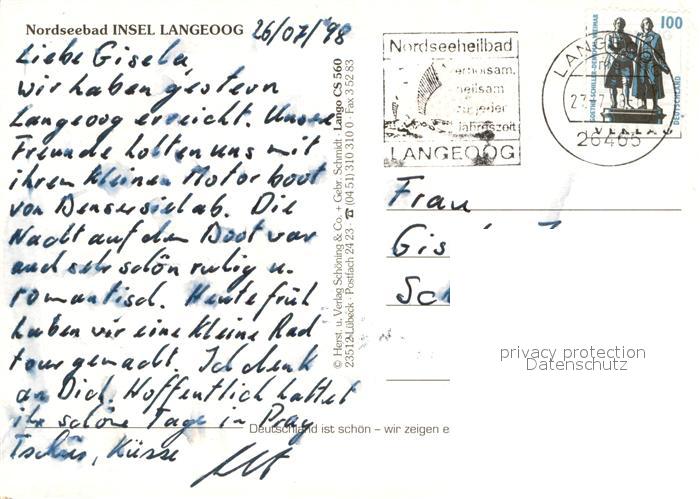 Nordseebad INSEL LANGEOOG 26/07/'98
Liebe Gisela,
wir haben gestern
Langeoog erreicht. Unsere
Freunde holten uns mit
ihrem kleinen Motorboot
von Bensersiel ab. Die
Nacht auf dem Boot war
auch sehr schön ruhig u.
romantisch. Heute früh
haben wir eine kleine Rad
tour gemacht. Ich denk
an Dich. Hoffentlich hattet
ihr schöne Tage in Prag
Tschüs, Küsse
© Herst. u. Verlag Schöning & Co. + Gebr. Schmidt · Lango CS 560
23512 Lübeck · Postfach 24 23 · ☎ (04 51) 310 310 0 · Fax 3 52 83
Deutschland ist schön – wir zeigen e
Nordseeheilbad
erholsam,
heilsam
zu jeder
Jahreszeit
LANGEOOG
LANGEOOG
26465
100
GOETHE-SCHILLER-DENKMAL WEIMAR
DEUTSCHLAND
Frau
Gis
Sch
privacy protection
Datenschutz